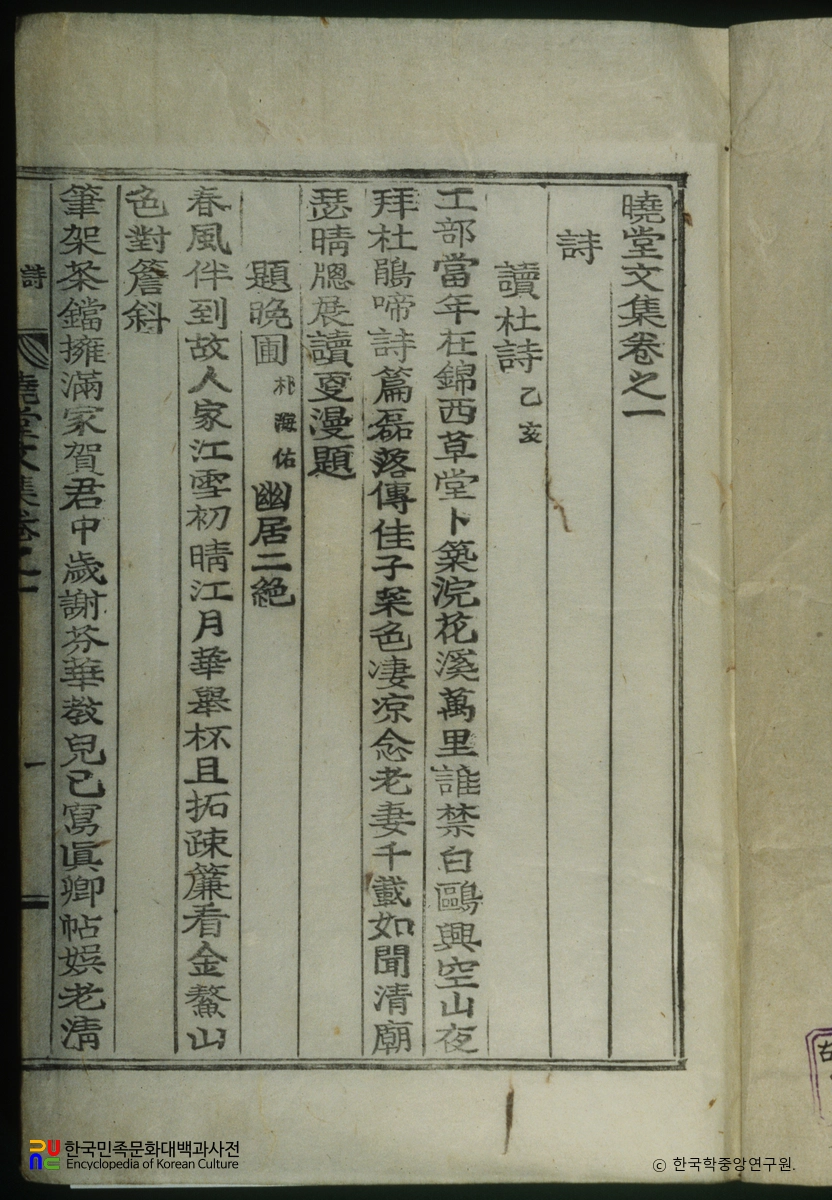 曉堂文集卷之一
詩
讀杜詩 乙亥
工部當年在錦西草堂卜築浣花溪萬里誰禁白鷗興空山夜
拜杜鵑啼詩篇磊落傳佳子菜色凄凉念老妻千載如聞清廟
瑟晴牕展讀更漫題
題晚圃 朴海佑 幽居二絶
春風伴到故人家江雪初晴江月華擧杯且拓疎簾看金鰲山
色對簷斜
筆架茶鐺擁滿家賀君中歲謝芬華敎兒已寫眞卿帖娛老淸
詩
曉堂文集卷之一
一
한국민족문화대백과사전
Encyclopedia of Korean Culture
ⓒ 한국학중앙연구원.